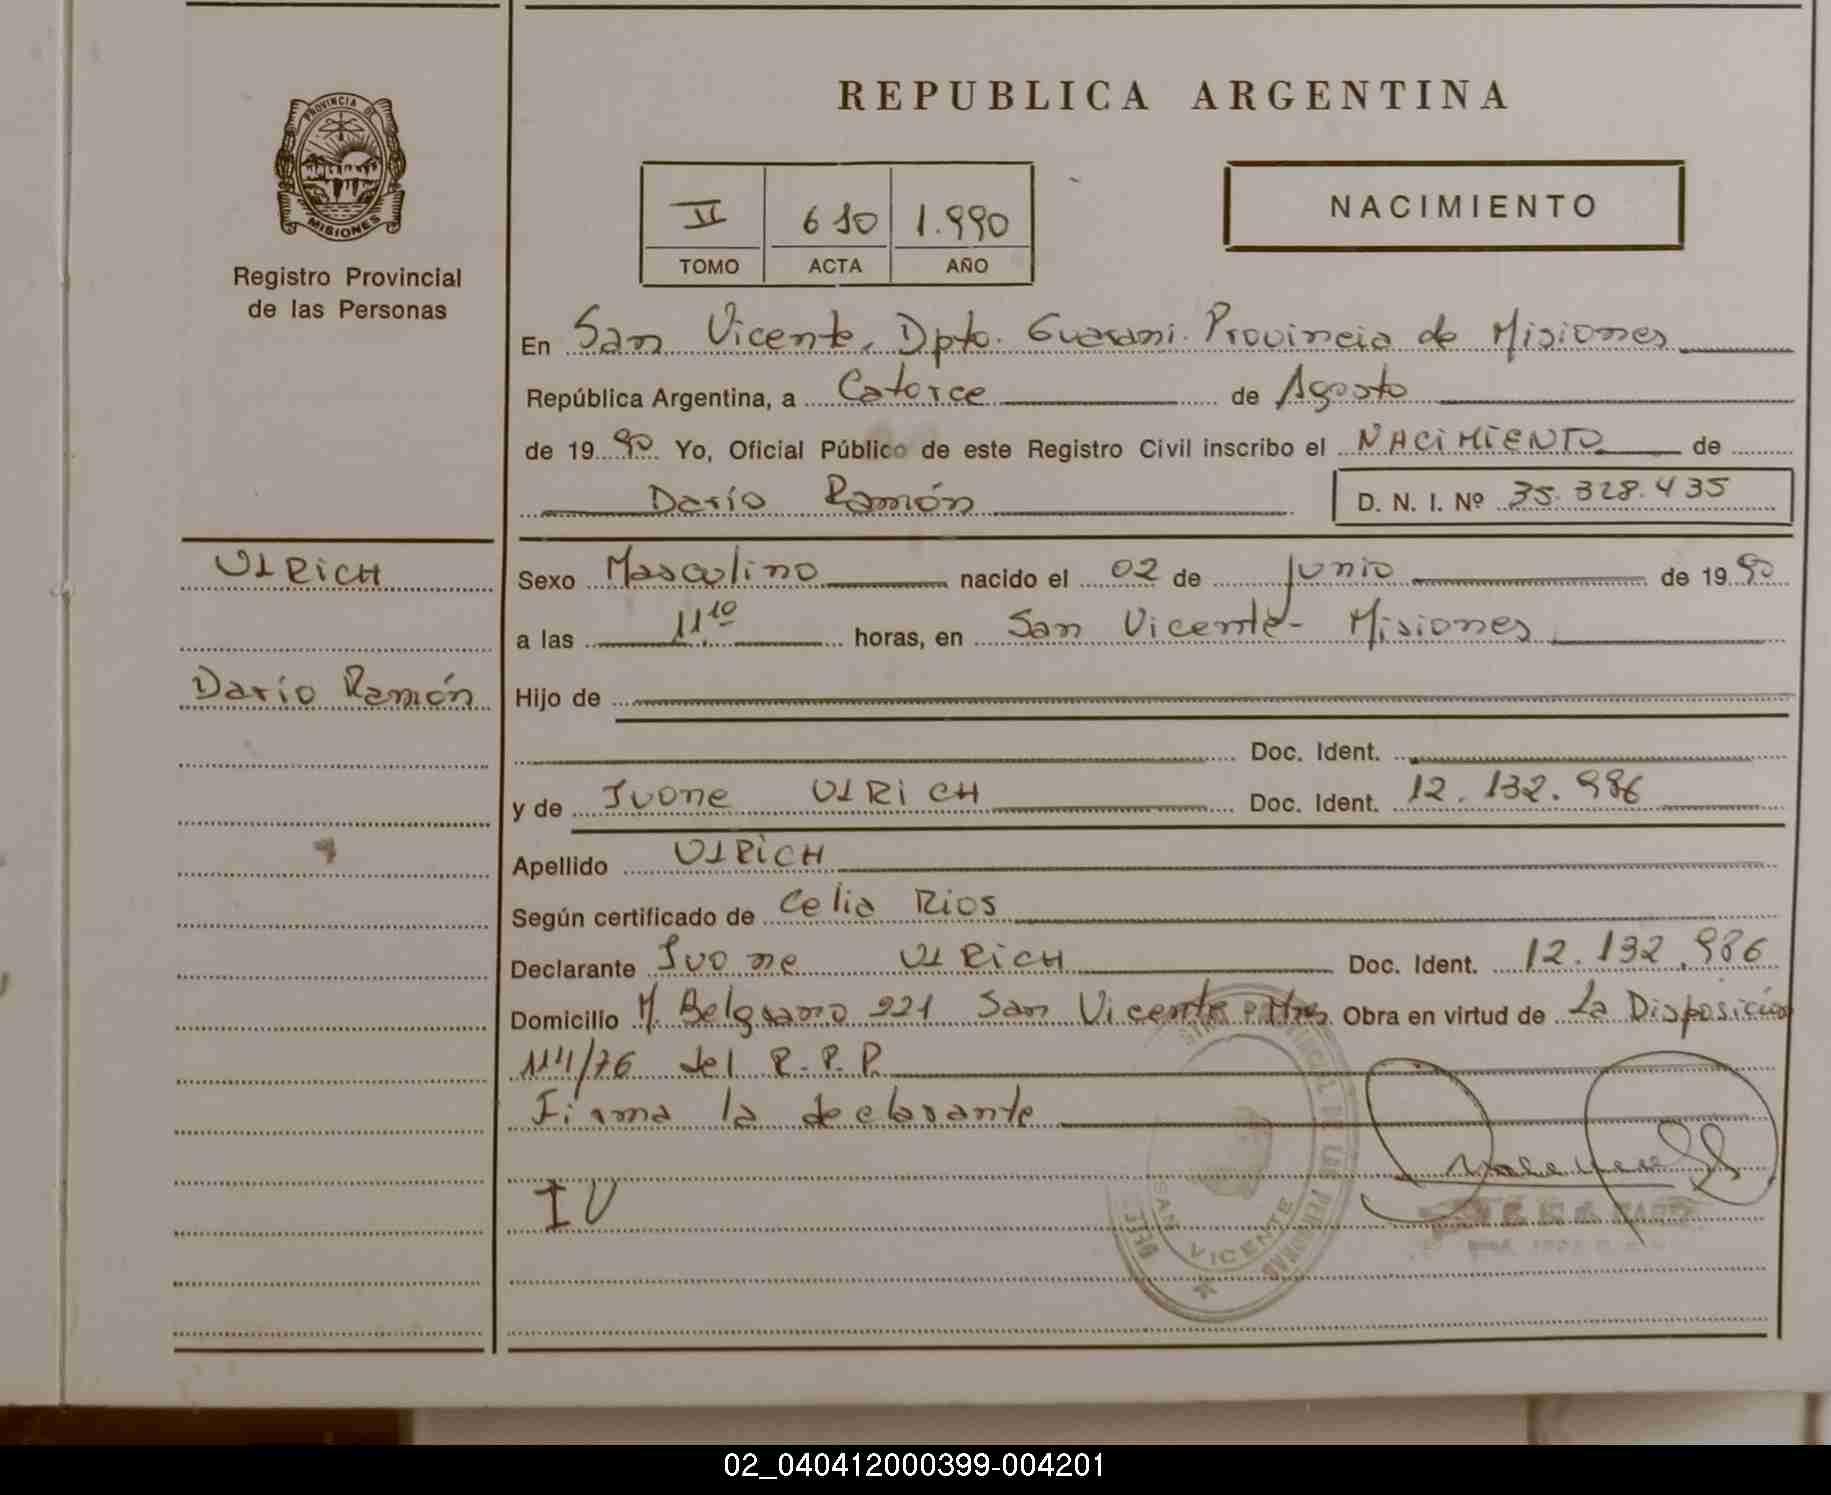 REPUBLICA ARGENTINA
PROVINCIA DE
MISIONES
Registro Provincial
de las Personas
II 610 1.990
TOMO ACTA AÑO
NACIMIENTO
En San Vicente, Dpto. Guarani. Provincia de Misiones
República Argentina, a Catorce de Agosto
de 1990 Yo, Oficial Público de este Registro Civil inscribo el NACIMIENTO de
Darío Ramón D. N. I. Nº 35.328.435
ULRICH
Darío Ramón
Sexo Masculino nacido el 02 de Junio de 1990
a las 11.10 horas, en San Vicente - Misiones
Hijo de
Doc. Ident.
y de Ivone ULRICH Doc. Ident. 12.132.986
Apellido ULRICH
Según certificado de Celia Rios
Declarante Ivone ULRICH Doc. Ident. 12.132.986
Domicilio M. Belgrano 221 San Vicente Mnes Obra en virtud de La Disposición
114/76 del R.P.P.
Firma la declarante
IU
SAN VICENTE
02_040412000399-004201